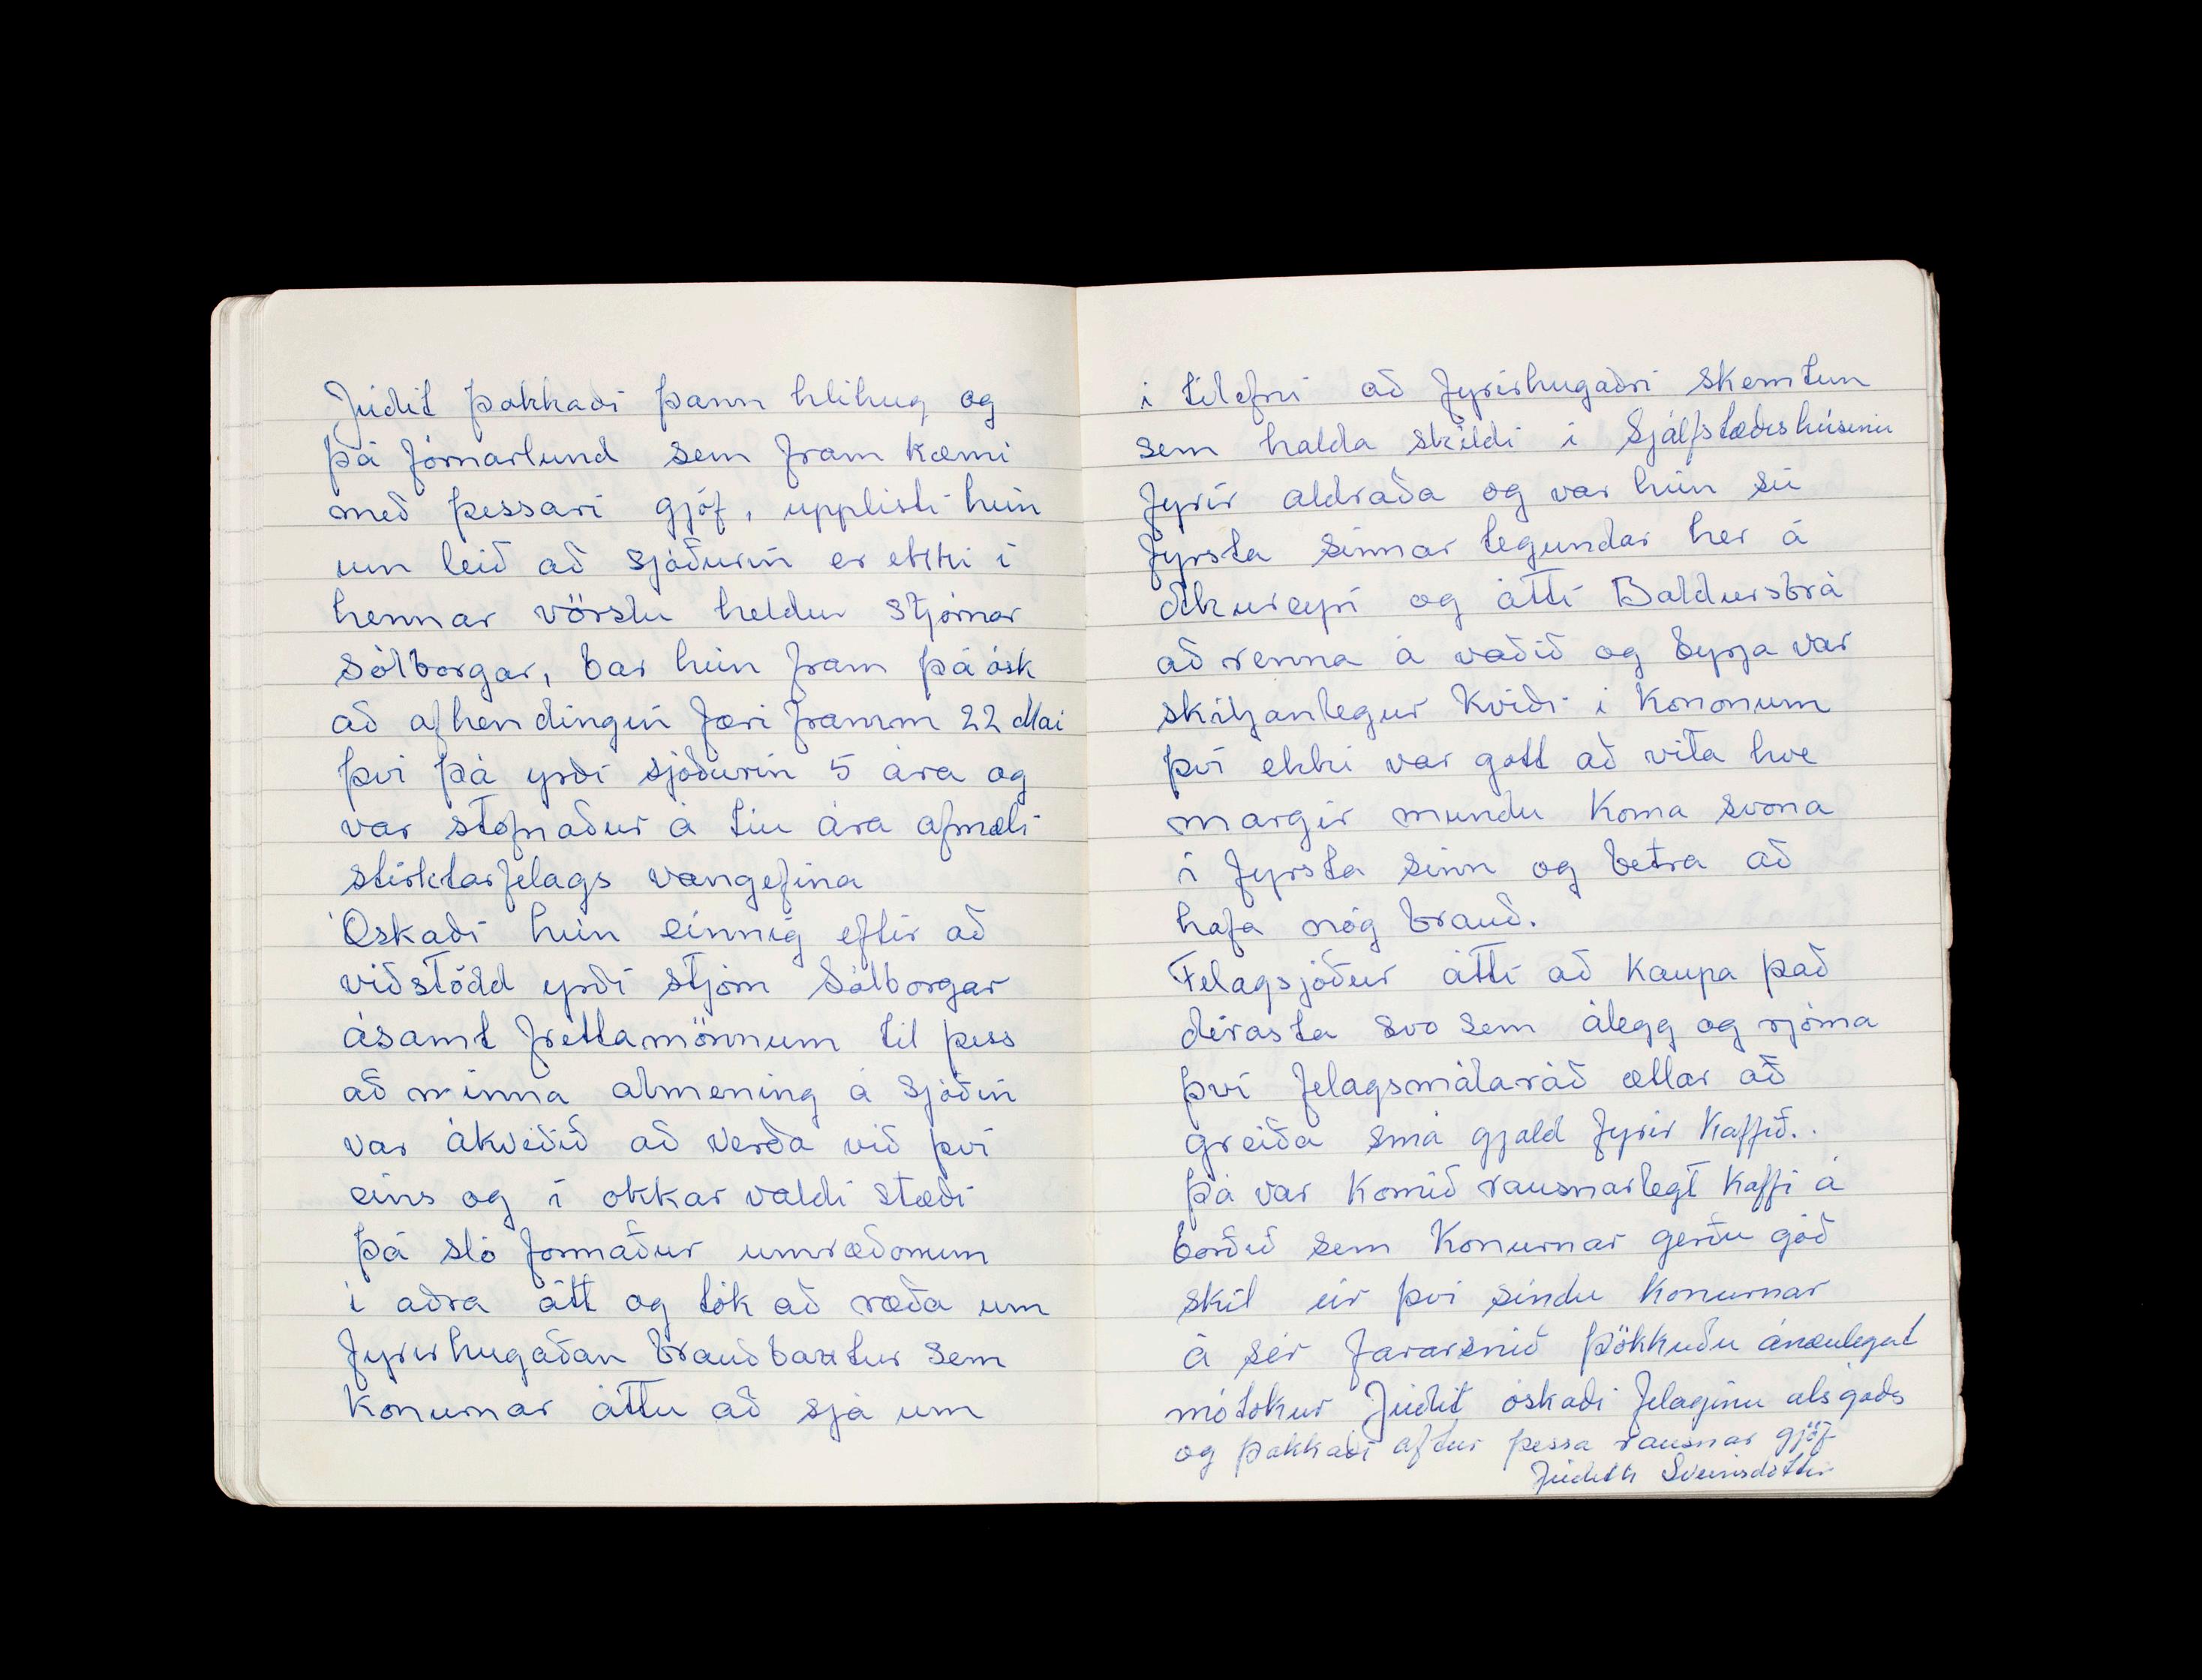 Júdit þakkaði þann hlihug og
þá fórnarlund sem fram kæmi
með þessari gjöf, upplisti hún
um leið að sjóðurin er ekki í
hennar vörslu heldur stjórnar
Sólborgar, bar hún fram þá ósk
að afhendingin færi framm 22 Mai
því þá yrði sjóðurin 5 ára og
var stofnaður á tíu ára afmæli
stirktarfelags vangefina
Óskaði hún einnig eftir að
viðstödd yrði stjórn Sólborgar
ásamt fréttamönnum til þess
að minna almening á sjóðin
var ákveðið að verða við því
eins og í okkar valdi stæði
Þá sló formaður umræðonum
í aðra átt og tók að ræða um
fyrirhugaðan brauðbaxtur sem
konurnar áttu að sjá um
í tilefni að fyrirhugaðri skemtun
sem halda skildi í Sjálfstæðishúsinu
fyrir aldraða og var hún sú
fyrsta sinnar tegundar her á
Akureyri og átti Baldursbrá
að renna á vaðið og byrja var
skiljanlegur kvíði í kononum
því ekki var gott að vita hve
margir mundu koma svona
í fyrsta sinn og betra að
hafa nóg brauð.
Felagsjóður átti að kaupa það
dírasta svo sem álegg og rjóma
því felagsmálaráð ætlar að
greiða smá gjald fyrir kaffið..
Þá var komið rausnarlegt kaffi á
borðið sem konurnar gerðu góð
skil úr því sindu konurnar
á sér fararsnið þökkuðu ánæulegat
mótokur Júdit óskaði felaginu alsgóðs
og þakkaði aftur þessa rausnar gjöf
Judith Sveinsdóttir